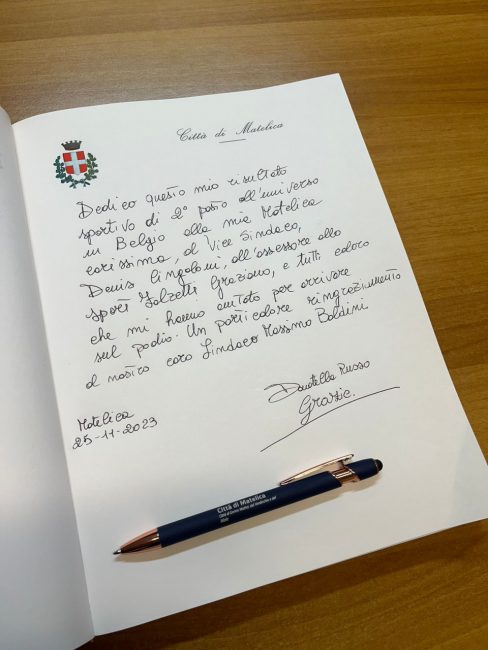 Città di Matelica
Dedico questo mio risultato
sportivo di 2° posto all'universo
in Belgio alla mia Matelica
carissima, al Vice Sindaco,
Denis Cingolani, all'assessore allo
sport Falzetti Graziano, e tutti coloro
che mi hanno aiutato per arrivare
sul podio. Un particolare ringraziamento
al nostro caro Sindaco Massimo Baldini
Donatella Russo
Grazie.
Matelica
25-11-2023
Città di Matelica